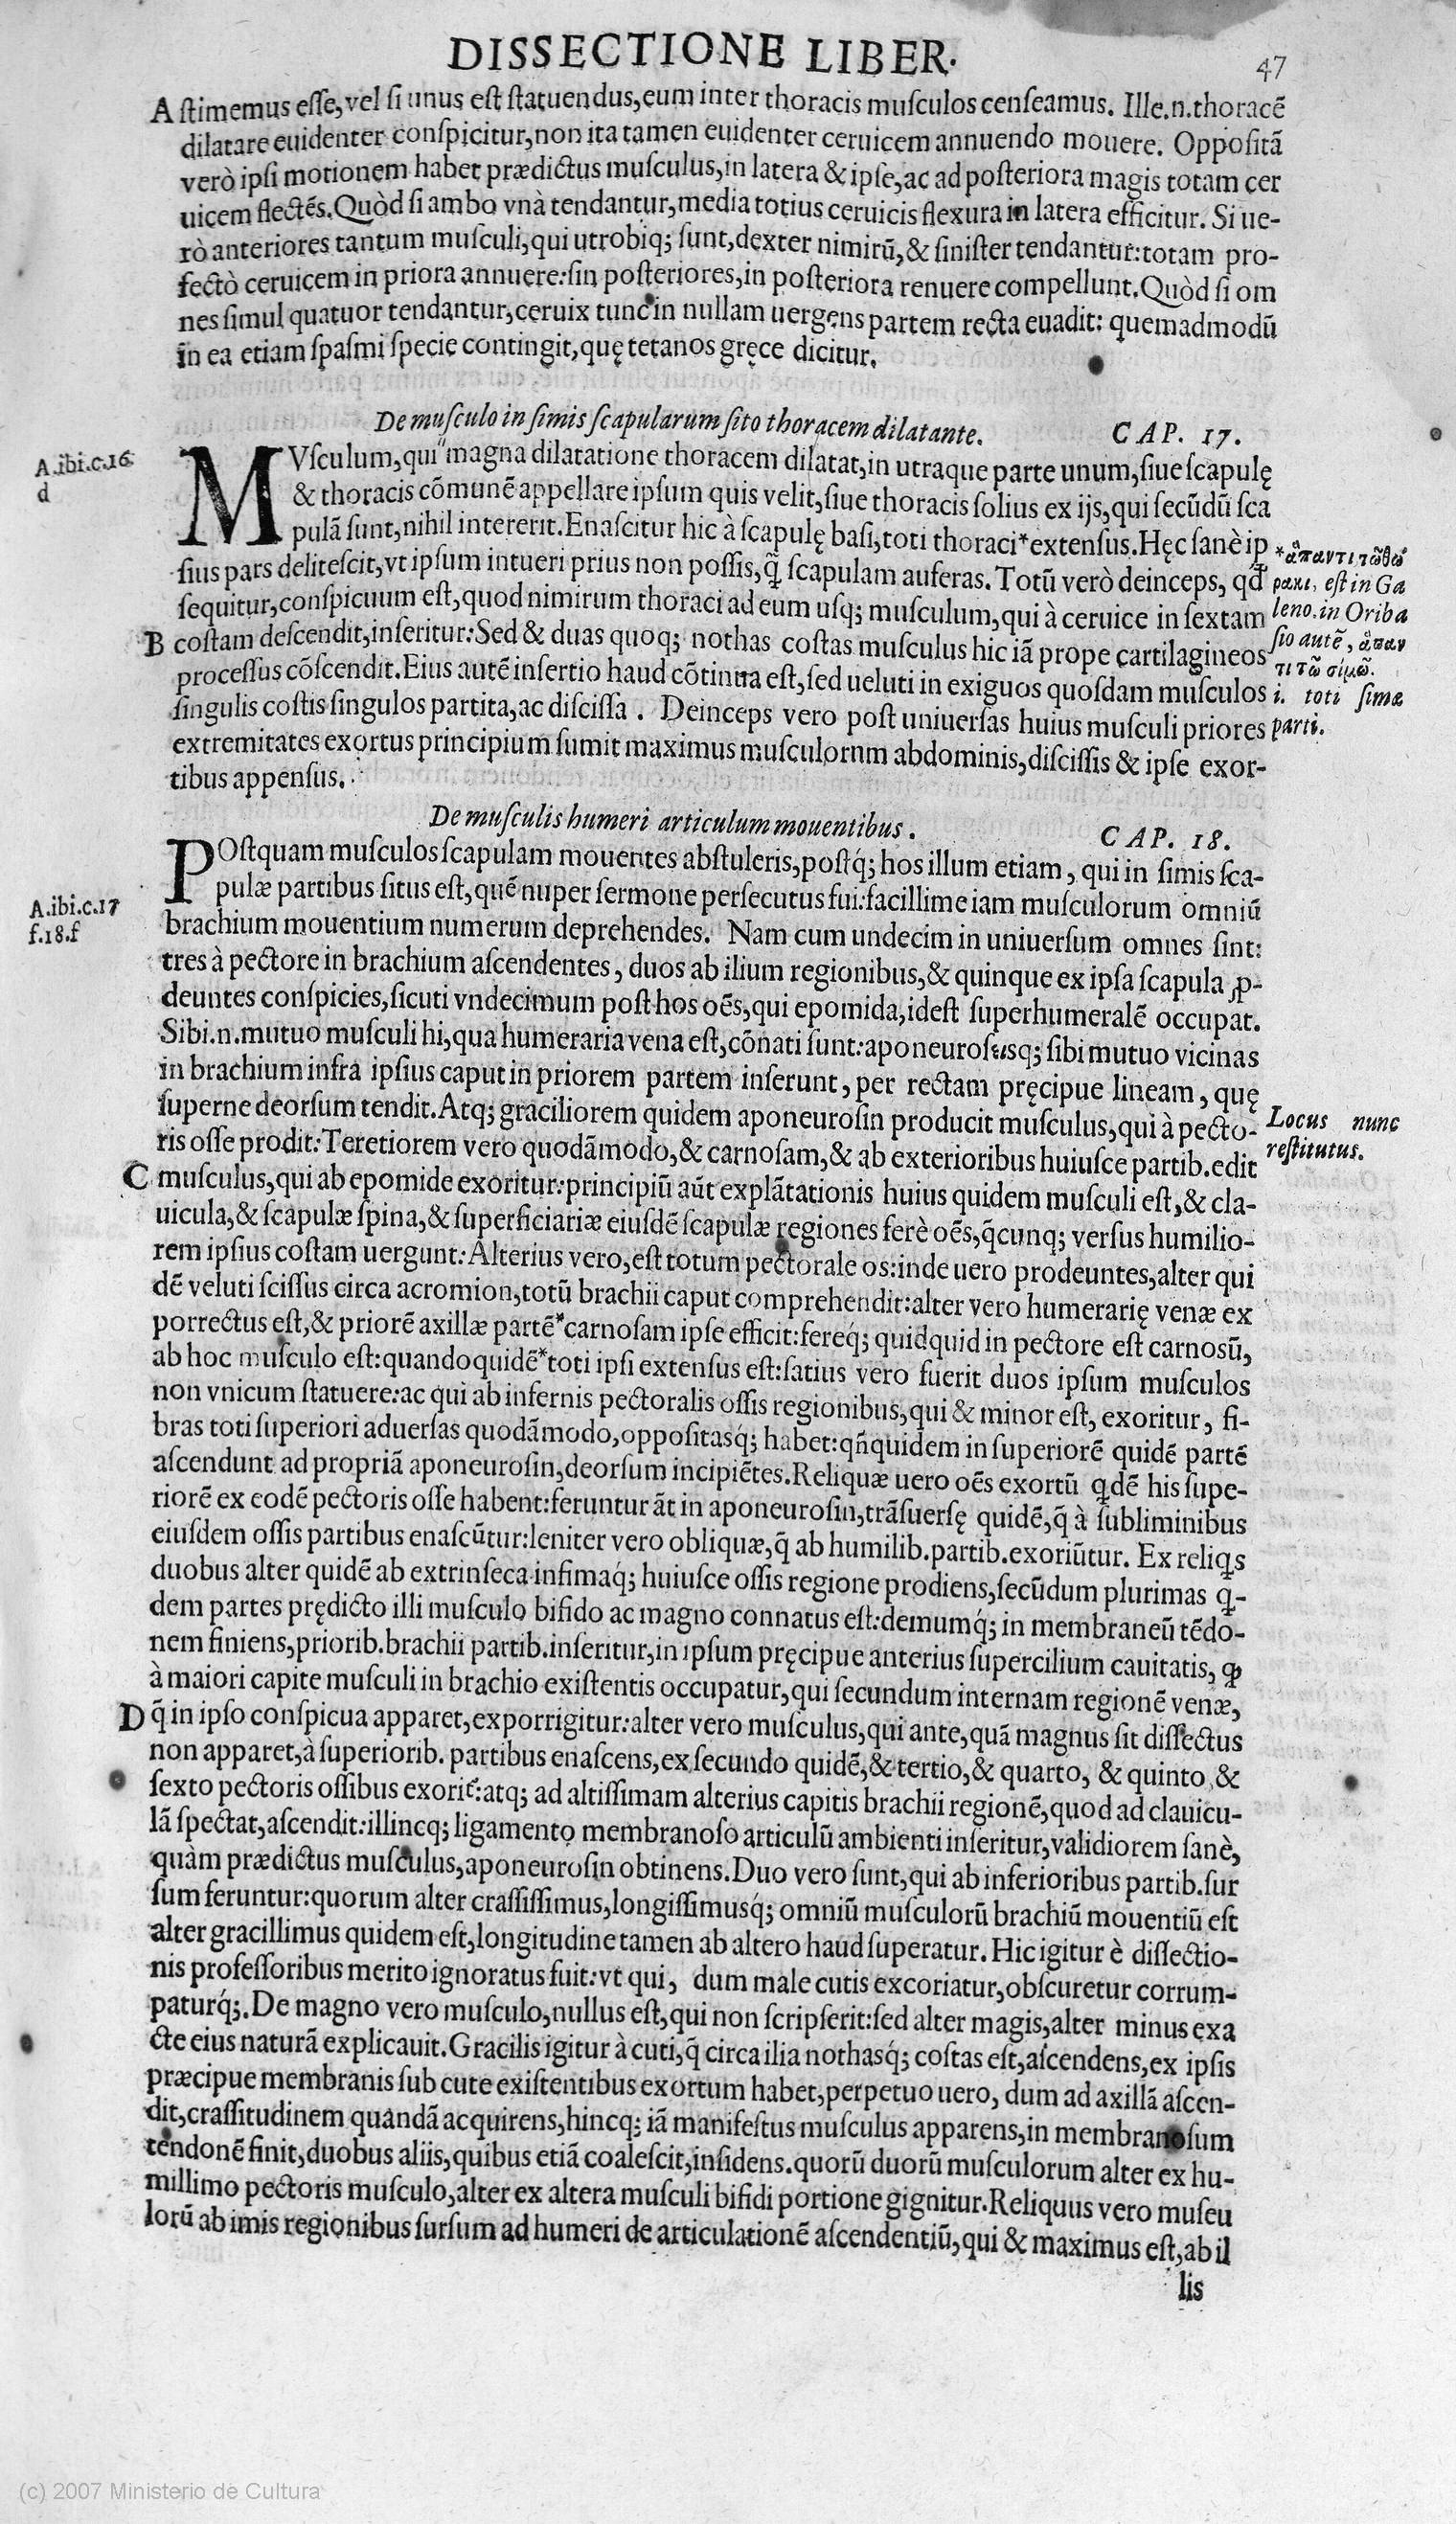 DISSECTIONE LIBER. 47
A ſtimemus eſſe, vel ſi unus eſt ſtatuendus, eum inter thoracis muſculos cenſeamus. Ille.n.thoracẽ
dilatare euidenter conſpicitur, non ita tamen euidenter ceruicem annuendo mouere. Oppoſitã
verò ipſi motionem habet prædictus muſculus, in latera & ipſe, ac ad poſteriora magis totam cer
uicem flectẽs. Quòd ſi ambo vnà tendantur, media totius ceruicis flexura in latera efficitur. Si ue-
rò anteriores tantum muſculi, qui utrobiq; ſunt, dexter nimirũ, & ſiniſter tendantur: totam pro-
fectò ceruicem in priora annuere: ſin poſteriores, in poſteriora renuere compellunt. Quòd ſi om
nes ſimul quatuor tendantur, ceruix tunc in nullam uergens partem recta euadit: quemadmodũ
in ea etiam ſpaſmi ſpecie contingit, quę tetanos gręce dicitur.
De muſculo in ſimis ſcapularum ſito thoracem dilatante. CAP. 17.
A.ibi.c.16
d
MVſculum, qui magna dilatatione thoracem dilatat, in utraque parte unum, ſiue ſcapulę
& thoracis cõmunẽ appellare ipſum quis velit, ſiue thoracis ſolius ex ijs, qui ſecũdũ ſca
pulã ſunt, nihil intererit. Enaſcitur hic à ſcapulę baſi, toti thoraci* extenſus. Hęc ſanè ip
ſius pars deliteſcit, vt ipſum intueri prius non poſſis, q̃ ſcapulam auferas. Totũ verò deinceps, qd̃
ſequitur, conſpicuum eſt, quod nimirum thoraci ad eum uſq; muſculum, qui à ceruice in ſextam
B coſtam deſcendit, inſeritur: Sed & duas quoq; nothas coſtas muſculus hic iã prope cartilagineos
proceſſus cõſcendit. Eius autẽ inſertio haud cõtinua eſt, ſed ueluti in exiguos quoſdam muſculos
ſingulis coſtis ſingulos partita, ac diſciſſa. Deinceps vero poſt uniuerſas huius muſculi priores
extremitates exortus principium ſumit maximus muſculorum abdominis, diſciſſis & ipſe exor-
tibus appenſus.
*ἅπαντι τῶ θώ
ρακι, eſt in Ga
leno. in Oriba
ſio autẽ, ἅπαν
τι τῶ σίμῶ.
i. toti ſimæ
parti.
De muſculis humeri articulum mouentibus. CAP. 18.
A.ibi.c.17
f.18.f
POſtquam muſculos ſcapulam mouentes abſtuleris, poſtq́; hos illum etiam, qui in ſimis ſca-
pulæ partibus ſitus eſt, quẽ nuper ſermone perſecutus fui: facillime iam muſculorum omniũ
brachium mouentium numerum deprehendes. Nam cum undecim in uniuerſum omnes ſint:
tres à pectore in brachium aſcendentes, duos ab ilium regionibus, & quinque ex ipſa ſcapula ꝓ-
deuntes conſpicies, ſicuti vndecimum poſt hos oẽs, qui epomida, ideſt ſuperhumeralẽ occupat.
Sibi.n.mutuo muſculi hi, qua humeraria vena eſt, cõnati ſunt: aponeuroſesq; ſibi mutuo vicinas
in brachium infra ipſius caput in priorem partem inſerunt, per rectam pręcipue lineam, quę
ſuperne deorſum tendit. Atq; graciliorem quidem aponeuroſin producit muſculus, qui à pecto-
ris oſſe prodit: Teretiorem vero quodãmodo, & carnoſam, & ab exterioribus huiuſce partib. edit
Locus nunc
reſtitutus.
C muſculus, qui ab epomide exoritur: principiũ aũt explãtationis huius quidem muſculi eſt, & cla-
uicula, & ſcapulæ ſpina, & ſuperficiariæ eiuſdẽ ſcapulæ regiones ferè oẽs, q̃cunq; verſus humilio-
rem ipſius coſtam uergunt: Alterius vero, eſt totum pectorale os: inde uero prodeuntes, alter qui
dẽ veluti ſciſſus circa acromion, totũ brachii caput comprehendit: alter vero humerarię venæ ex
porrectus eſt, & priorẽ axillæ partẽ* carnoſam ipſe efficit: fereq́; quidquid in pectore eſt carnosũ,
ab hoc muſculo eſt: quandoquidẽ* toti ipſi extenſus eſt: ſatius vero fuerit duos ipſum muſculos
non vnicum ſtatuere: ac qui ab infernis pectoralis oſſis regionibus, qui & minor eſt, exoritur, fi-
bras toti ſuperiori aduerſas quodãmodo, oppoſitasq́; habet: qñquidem in ſuperiorẽ quidẽ partẽ
aſcendunt ad propriã aponeuroſin, deorſum incipiẽtes. Reliquæ uero oẽs exortũ qdẽ his ſupe-
riorẽ ex eodẽ pectoris oſſe habent: feruntur ãt in aponeuroſin, trãſuerſę quidẽ, q̃ à ſubliminibus
eiuſdem oſſis partibus enaſcũtur: leniter vero obliquæ, q̃ ab humilib. partib. exoriũtur. Ex reliqs
duobus alter quidẽ ab extrinſeca infimaq́; huiuſce oſſis regione prodiens, ſecũdum plurimas q-
dem partes prędicto illi muſculo bifido ac magno connatus eſt: demumq́; in membraneũ tẽdo-
nem finiens, priorib. brachii partib. inſeritur, in ipſum pręcipue anterius ſupercilium cauitatis, ꝙ
à maiori capite muſculi in brachio exiſtentis occupatur, qui ſecundum internam regionẽ venæ,
D q̃ in ipſo conſpicua apparet, exporrigitur: alter vero muſculus, qui ante, quã magnus ſit diſſectus
non apparet, à ſuperiorib. partibus enaſcens, ex ſecundo quidẽ, & tertio, & quarto, & quinto, &
ſexto pectoris oſſibus exorit̃: atq; ad altiſſimam alterius capitis brachii regionẽ, quod ad clauicu-
lã ſpectat, aſcendit: illincq; ligamento membranoſo articulũ ambienti inſeritur, validiorem ſanè,
quàm prædictus muſculus, aponeuroſin obtinens. Duo vero ſunt, qui ab inferioribus partib. ſur
ſum feruntur: quorum alter craſſiſſimus, longiſſimusq́; omniũ muſculorũ brachiũ mouentiũ eſt
alter gracillimus quidem eſt, longitudine tamen ab altero haud ſuperatur. Hic igitur è diſſectio-
nis profeſſoribus merito ignoratus fuit: vt qui, dum male cutis excoriatur, obſcuretur corrum-
paturq́;. De magno vero muſculo, nullus eſt, qui non ſcripſerit: ſed alter magis, alter minus exa
cte eius naturã explicauit. Gracilis igitur à cuti, q̃ circa ilia nothasq́; coſtas eſt, aſcendens, ex ipſis
præcipue membranis ſub cute exiſtentibus exortum habet, perpetuo uero, dum ad axillã aſcen-
dit, craſſitudinem quandã acquirens, hincq; iã manifeſtus muſculus apparens, in membranoſum
tendonẽ finit, duobus aliis, quibus etiã coaleſcit, inſidens. quorũ duorũ muſculorum alter ex hu-
millimo pectoris muſculo, alter ex altera muſculi bifidi portione gignitur. Reliquus vero muſcu
lorũ ab imis regionibus ſurſum ad humeri de articulationẽ aſcendentiũ, qui & maximus eſt, ab il
lis
(c) 2007 Ministerio de Cultura